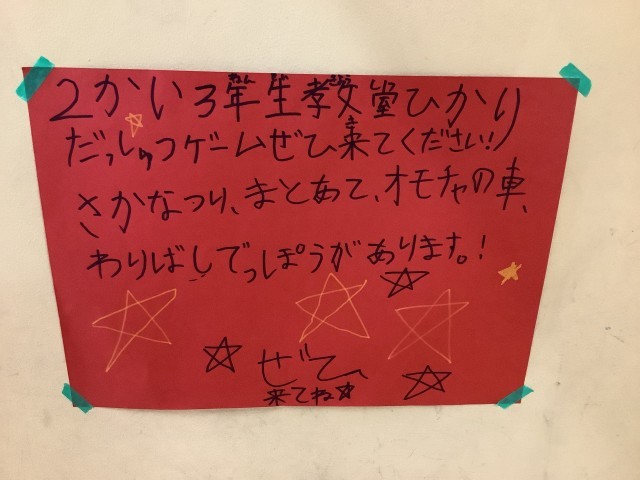 2かい3年生教室ひかり
だっしゅつゲームぜひ来てください!
さかなつり、まとあて、オモチャの車、
わりばしでっぽうがあります。!
ぜひ
来てね☆